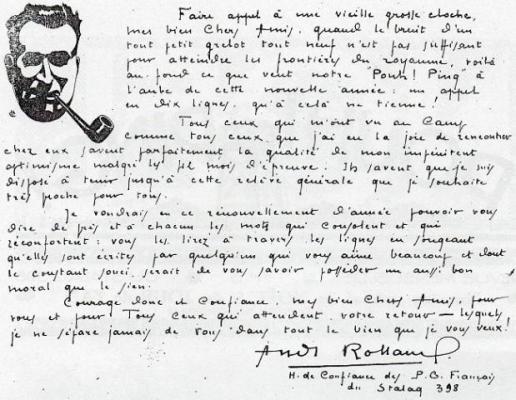 Faire appel à une vieille grosse cloche,
mes bien Chers Amis, quand le bruit d'un
tout petit grelot tout neuf n'est pas suffisant
pour atteindre les frontières du royaume, voilà
au fond ce que veut notre "Pouh! Ping" à
l'aube de cette nouvelle année: un appel
en dix lignes, qu'à cela ne tienne!
Tous ceux qui m'ont vu au Camp
comme tous ceux que j'ai eu la joie de rencontrer
chez eux savent parfaitement la qualité de mon impénitent
optimisme malgré les mois d'épreuve: Ils savent que je suis
disposé à tenir jusqu'à cette relève générale que je souhaite
très proche pour tous.
Je voudrais en ce renouvellement d'année pouvoir vous
dire de près et à chacun les mots qui consolent et qui
réconfortent: vous les lirez à travers les lignes en songeant
qu'elles sont écrites par quelqu'un qui vous aime beaucoup et dont
le constant souci serait de vous savoir posséder un aussi bon
moral que le sien.
Courage donc et Confiance, mes bien Chers Amis, pour
vous et pour Tous ceux qui attendent votre retour — lesquels
je ne sépare jamais de vous dans tout le bien que je vous veux!
H. de Confiance des P.G. Français
du Stalag 398